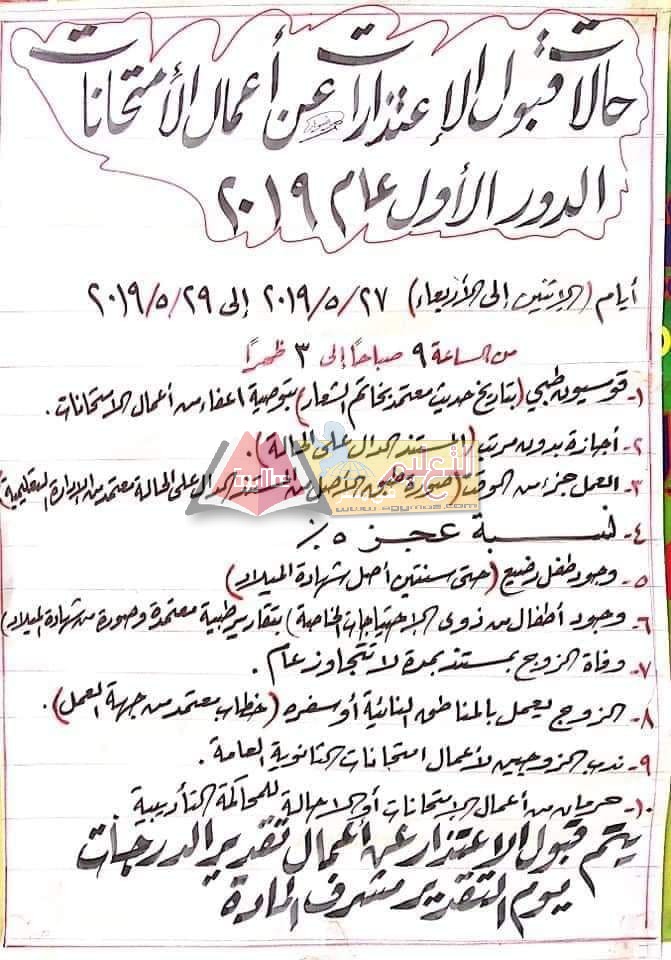 حالات قبول الإعتذارات عن أعمال الأمتحانات
الدور الأول عام ٢٠١٩
أيام (الإثنين إلى الأربعاء) ٢٧/٥/٢٠١٩ إلى ٢٩/٥/٢٠١٩
من الساعة ٩ صباحاً إلى ٣ ظهراً
١- قومسيون طبي (بتاريخ حديث معتمد بخاتم الشعار) بتوصية اعفاء من أعمال الأمتحانات.
٢- أجازة بدون مرتب (المستند الدال على الحالة).
٣- العمل جزء من الوقت (صورة طبق الأصل من المستند الدال على الحالة معتمد من الإدارة التعليمية)
٤- نسبة عجز ٥٪
٥- وجود طفل رضيع (حتى سنتين أصل شهادة الميلاد)
٦- وجود أطفال من ذوى الإحتياجات الخاصة (بتقارير طبية معتمدة وصورة من شهادة الميلاد)
٧- وفاة الزوج بمستند بمدة لا تتجاوز عام.
٨- الزوج يعمل بالمناطق النائية أو سفره (خطاب معتمد من جهة العمل).
٩- ندب الزوجين لأعمال امتحانات الثانوية العامة.
١٠- حرمان من أعمال الإمتحانات أو الإحالة للمحاكمة التأديبية.
يتم قبول الاعتذار عن أعمال تقدير الدرجات
يوم التقدير مشرف المادة